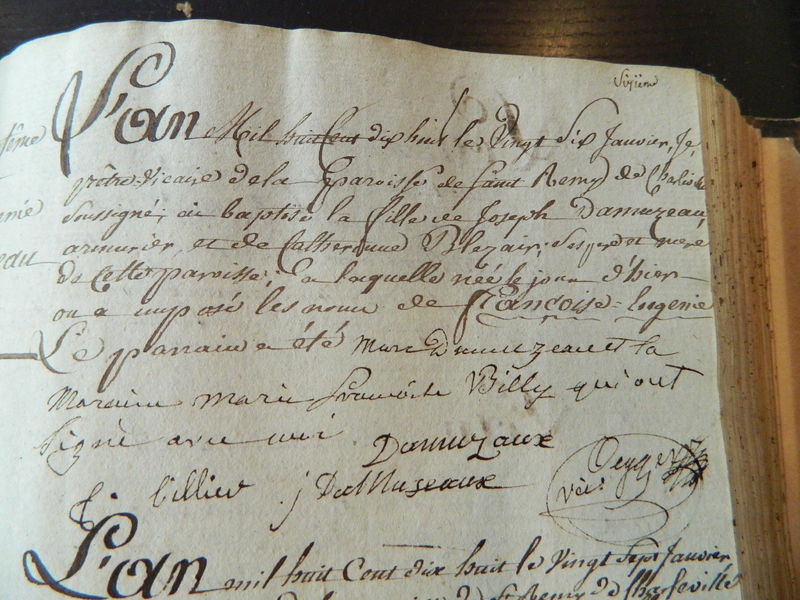 Sixieme
L'an Mil huit Cent dix huit le Vingt Six Janvier, Je,
prêtre vicaire de la Paroisse de saint Remy de Charleville
Soussigné, ai baptisé la fille de Joseph Damuzeau,
armurier, et de Catherinne Blezair, Ses pere et mere
de Cette paroisse, a laquelle née le jour d'hier
on a imposé les noms de Françoise-Eugenie
Le parrain a été Marc Damuzeau et la
Maraine marie françoise Billy qui ont
Signé avec moi
Damuzaux
j DaMuseaux
vic:
L'an mil huit Cent dix huit le Vingt Sept Janvier
de St Remy de Charleville